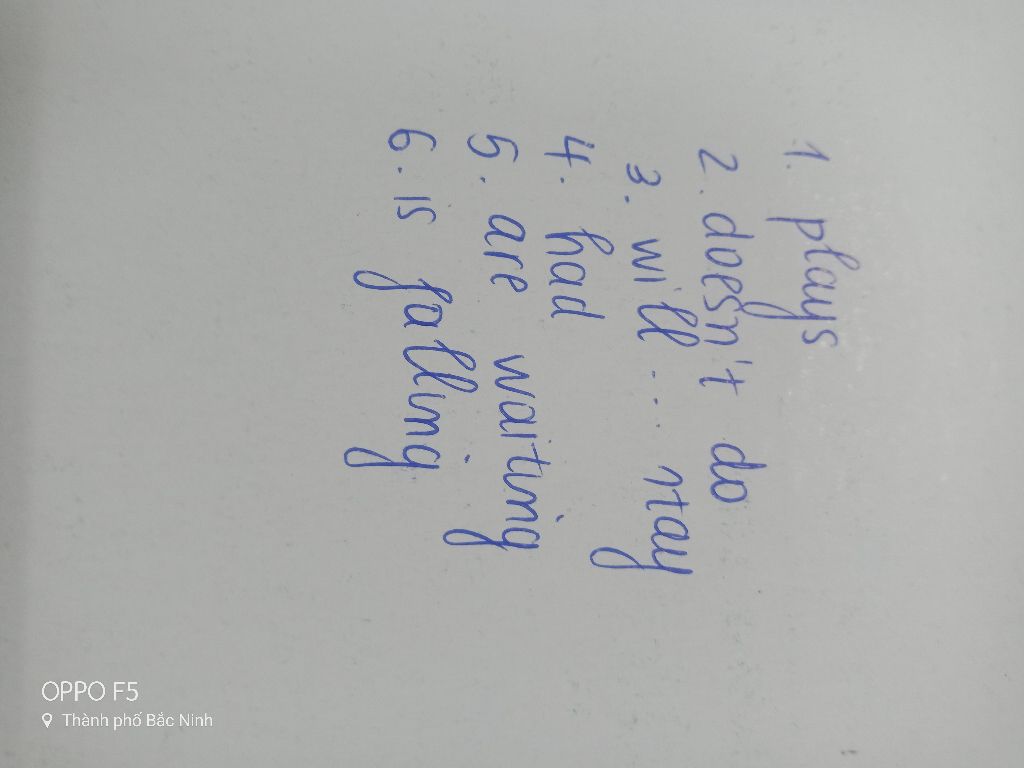 1. plays
2. doesn't do
3. will ... stay
4. had
5. are waiting
6. is falling
OPPO F5
Thành phố Bắc Ninh